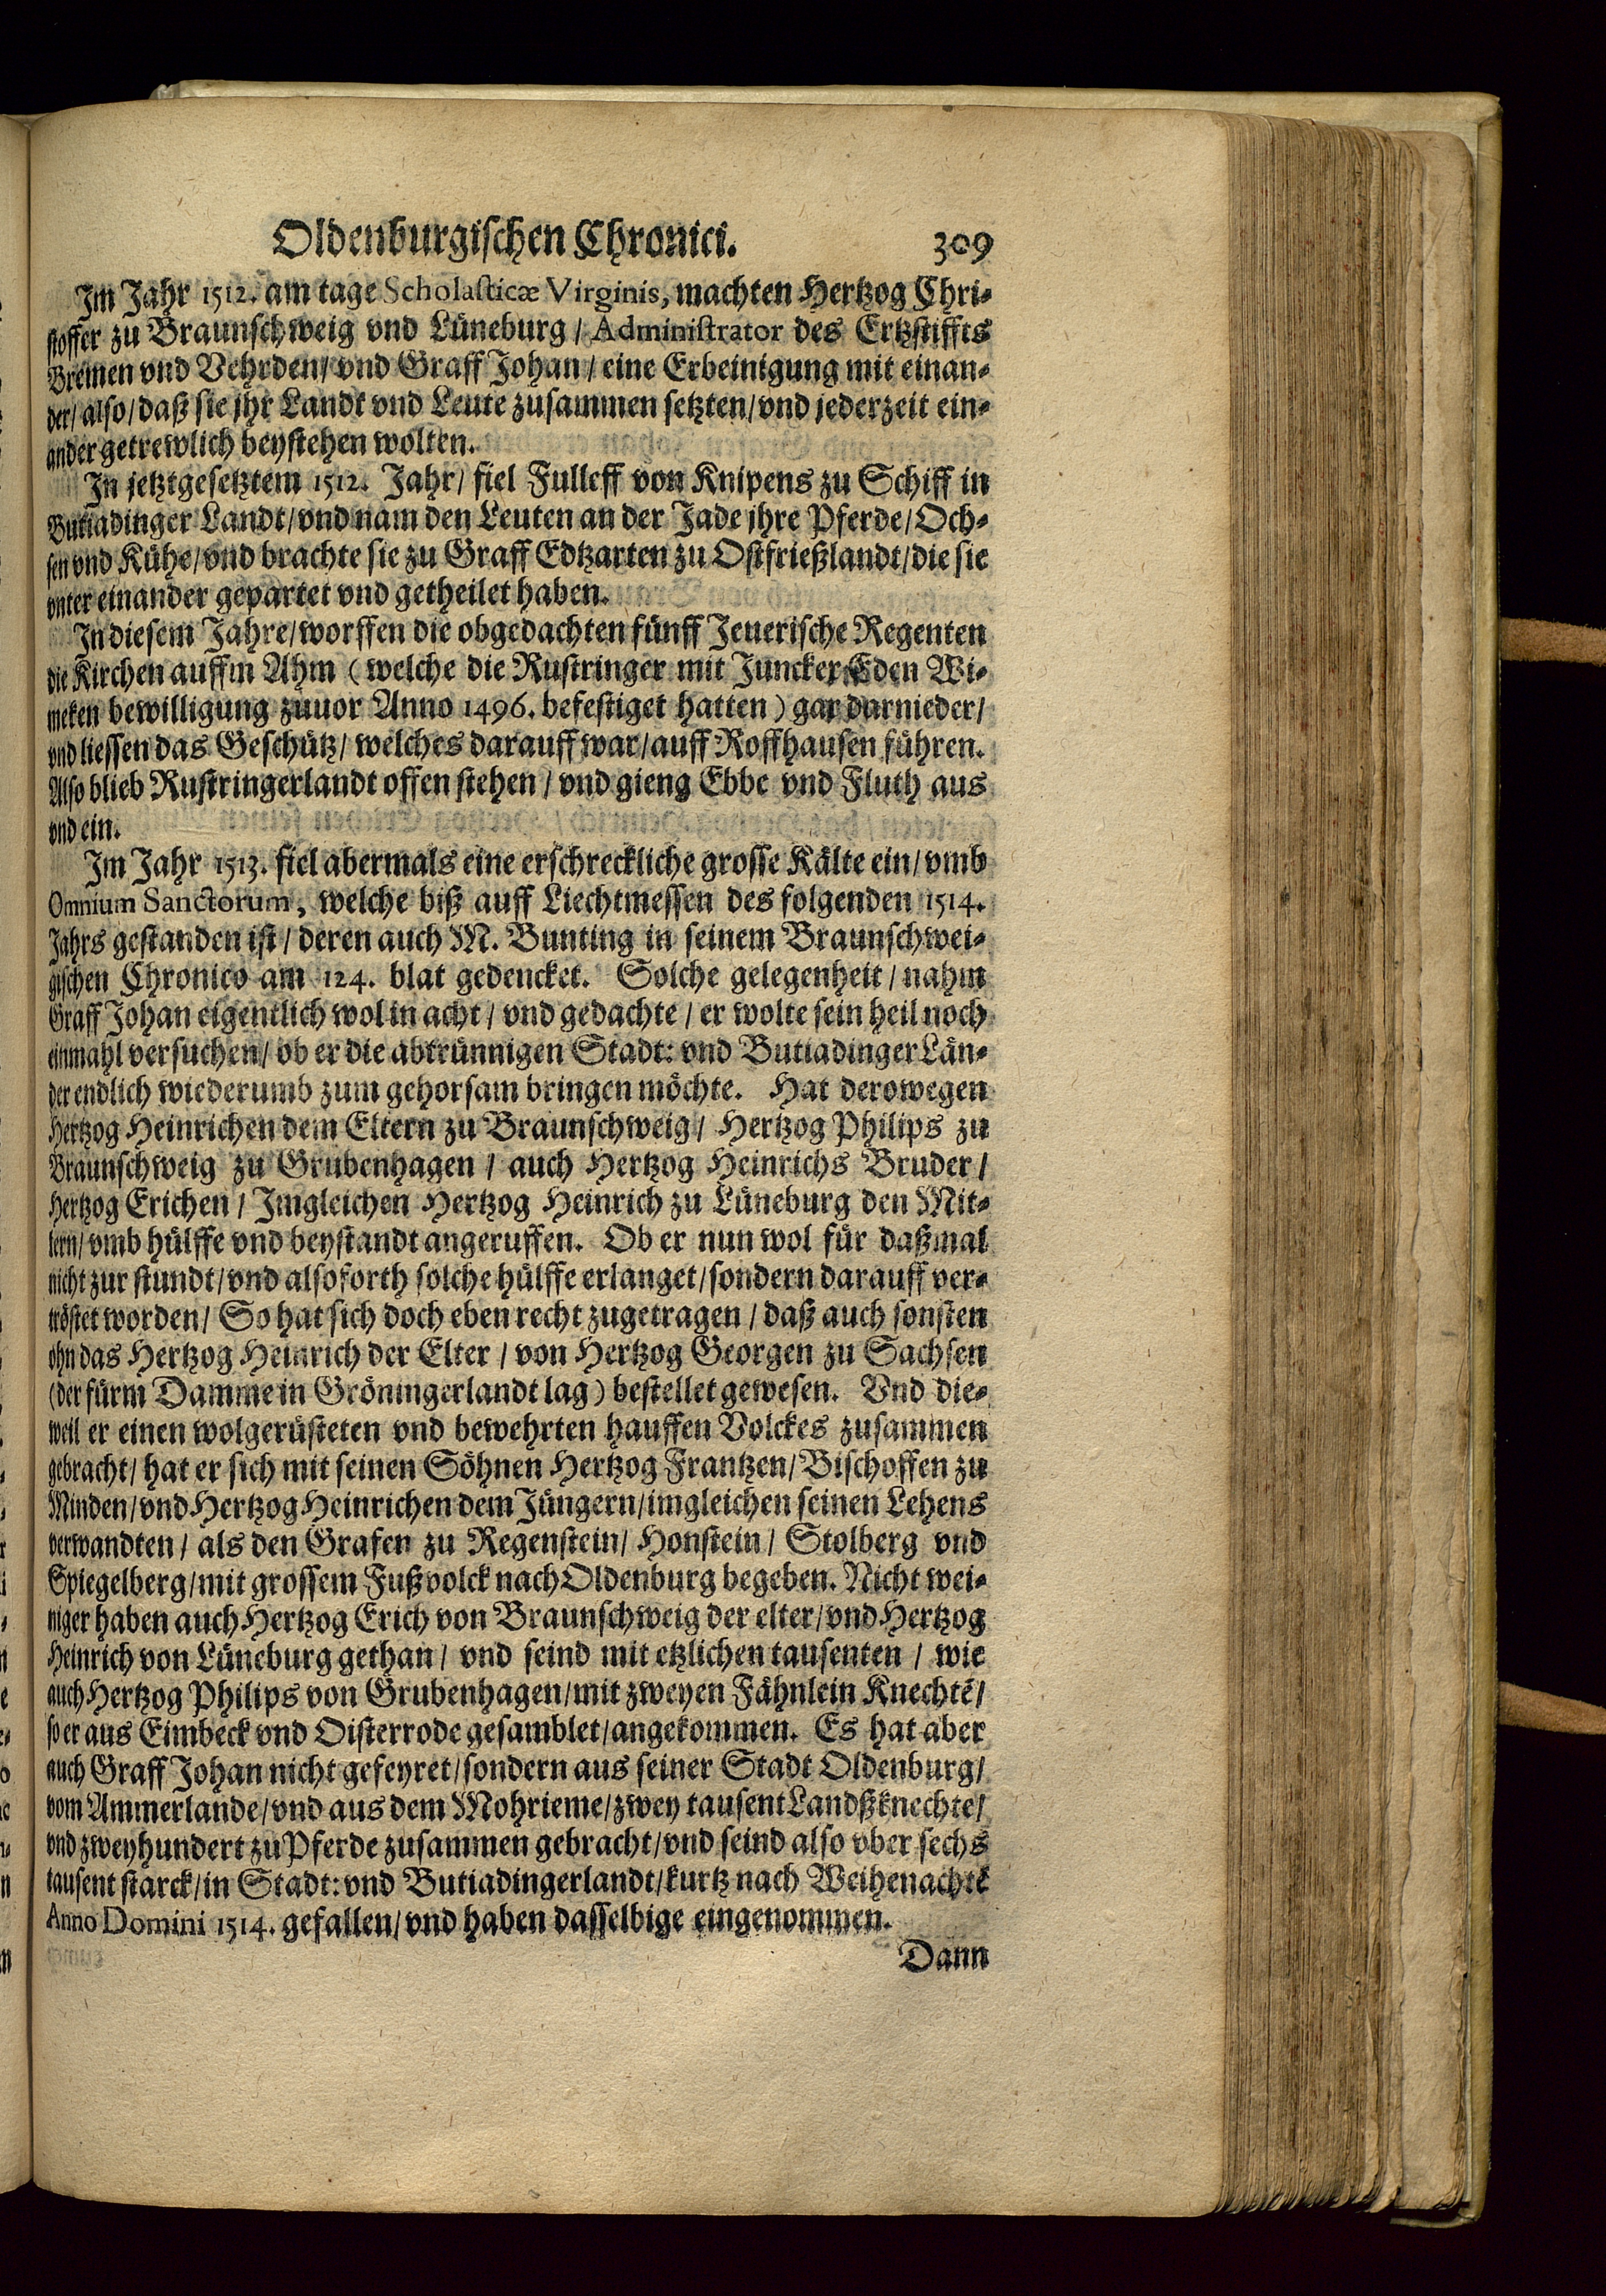 Oldenburgischen Chronici. 309
Im Jahr 1512. am tage Scholasticæ Virginis, machten Hertzog Chri-
stoffer zu Braunschweig vnd Lüneburg / Administrator des Ertzstiffts
Bremen vnd Vehrden / vnd Graff Johan / eine Erbeinigung mit einan-
der / also / daß sie jhr Landt vnd Leute zusammen setzten / vnd jederzeit ein-
ander getrewlich beystehen wolten.
In jetztgesetztem 1512. Jahr / fiel Fulleff von Knipens zu Schiff in
Butiadinger Landt / vnd nam den Leuten an der Jade jhre Pferde / Och-
sen vnd Kühe / vnd brachte sie zu Graff Edtzarten zu Ostfrießlandt / die sie
vnter einander gepartet vnd getheilet haben.
In diesem Jahre / worffen die obgedachten fünff Jeuerische Regenten
die Kirchen auffm Ahm (welche die Rustringer mit Juncker Eden Wi-
meken bewilligung zuuor Anno 1496. befestiget hatten) gar darnieder /
vnd liessen das Geschütz / welches darauff war / auff Roffhausen führen.
Also blieb Rustringerlandt offen stehen / vnd gieng Ebbe vnd Fluth aus
vnd ein.
Im Jahr 1513. fiel abermals eine erschreckliche grosse Kälte ein / vmb
Omnium Sanctorum, welche biß auff Liechtmessen des folgenden 1514.
Jahrs gestanden ist / deren auch M. Bunting in seinem Braunschwei-
gischen Chronico am 124. blat gedencket. Solche gelegenheit / nahm
Graff Johan eigentlich wol in acht / vnd gedachte / er wolte sein heil noch
einmahl versuchen / ob er die abtrünnigen Stadt: vnd Butiadinger Län-
der endlich wiederumb zum gehorsam bringen möchte. Hat derowegen
Hertzog Heinrichen dem Eltern zu Braunschweig / Hertzog Philips zu
Braunschweig zu Grubenhagen / auch Hertzog Heinrichs Bruder /
Hertzog Erichen / Imgleichen Hertzog Heinrich zu Lüneburg den Mit-
lern / vmb hülffe vnd beystandt angeruffen. Ob er nun wol für daßmal
nicht zur stundt / vnd alsoforth solche hülffe erlanget / sondern darauff ver-
tröstet worden / So hat sich doch eben recht zugetragen / daß auch sonsten
ohn das Hertzog Heinrich der Elter / von Hertzog Georgen zu Sachsen
(der fürm Damme in Gröningerlandt lag) bestellet gewesen. Vnd die-
weil er einen wolgerüsteten vnd bewehrten hauffen Volckes zusammen
gebracht / hat er sich mit seinen Söhnen Hertzog Frantzen / Bischoffen zu
Minden / vnd Hertzog Heinrichen dem Jüngern / imgleichen seinen Lehens
verwandten / als den Grafen zu Regenstein / Honstein / Stolberg vnd
Spiegelberg / mit grossem Fußvolck nach Oldenburg begeben. Nicht wei-
niger haben auch Hertzog Erich von Braunschweig der elter / vnd Hertzog
Heinrich von Lüneburg gethan / vnd seind mit etzlichen tausenten / wie
auch Hertzog Philips von Grubenhagen / mit zweyen Fähnlein Knechtẽ /
so er aus Eimbeck vnd Oisterrode gesamblet / angekommen. Es hat aber
auch Graff Johan nicht gefeyret / sondern aus seiner Stadt Oldenburg /
vom Ammerlande / vnd aus dem Mohrieme / zwey tausent Landßknechte /
vnd zweyhundert zu Pferde zusammen gebracht / vnd seind also vber sechs
tausent starck / in Stadt: vnd Butiadingerlandt / kurtz nach Weihenachtẽ
Anno Domini 1514. gefallen / vnd haben dasselbige eingenommen.
Dann